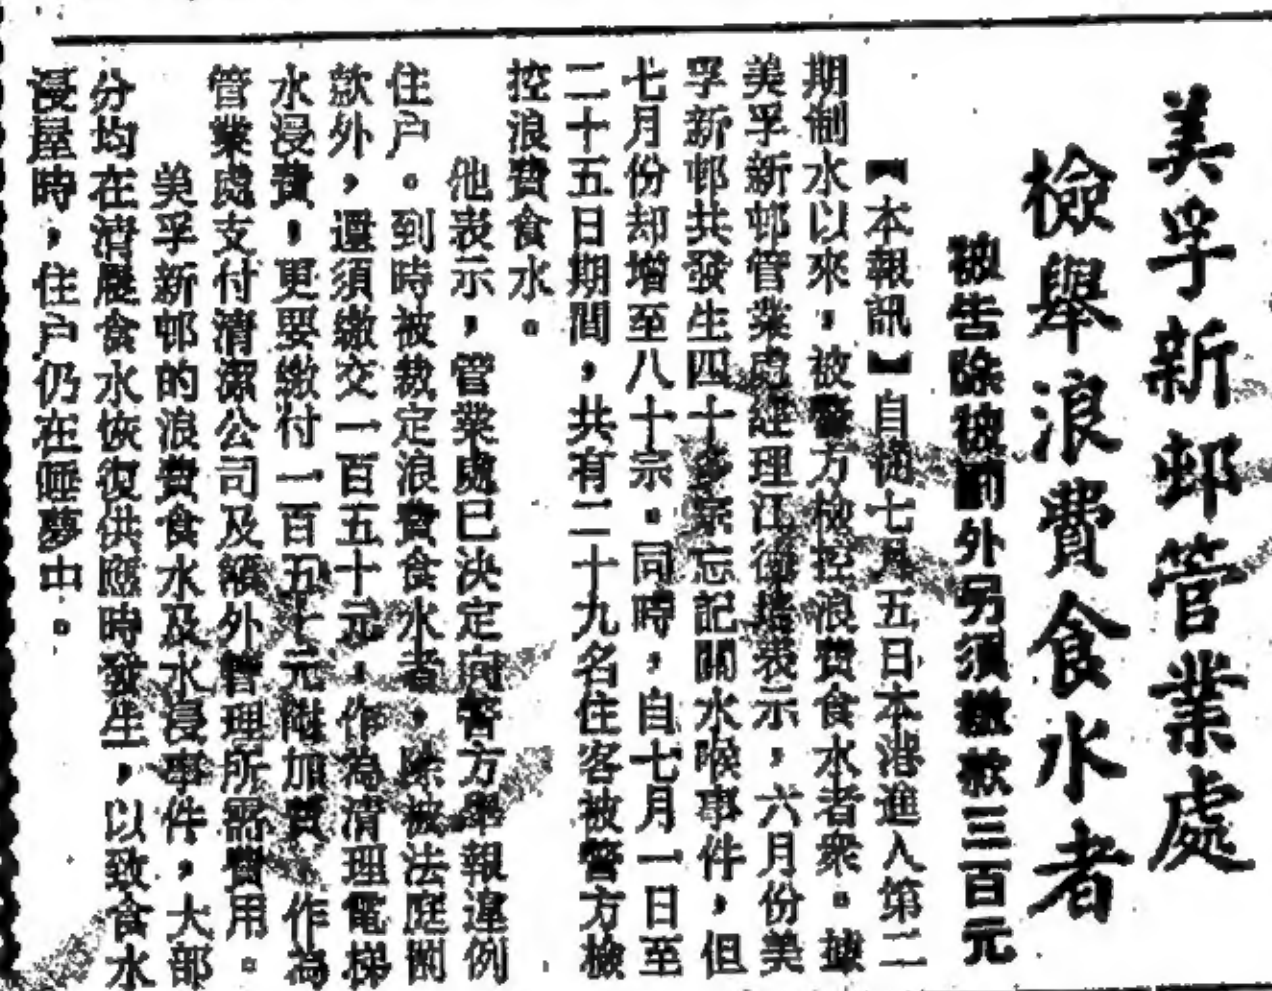 美孚新邨管業處
檢舉浪費食水者
被告除被罰外另須繳款三百元
【本報訊】自從七月五日本港進入第二
期制水以來，被警方檢控浪費食水者衆。據
美孚新邨管業處經理江 表示，六月份美
孚新邨共發生四十多宗忘記關水喉事件，但
七月份却增至八十宗。同時，自七月一日至
二十五日期間，共有二十九名住客被警方檢
控浪費食水。
他表示，管業處已决定向警方舉報違例
住户。到時被裁定浪費食水者，除被法庭罰
款外，還須繳交一百五十元，作為清理電梯
水浸費，更要繳付一百五十元附加費，作為
管業處支付清潔公司及額外管理所需費用。
美孚新邨的浪費食水及水浸事件，大部
分均在清晨食水恢復供應時發生，以致食水
浸屋時，住户仍在睡夢中。